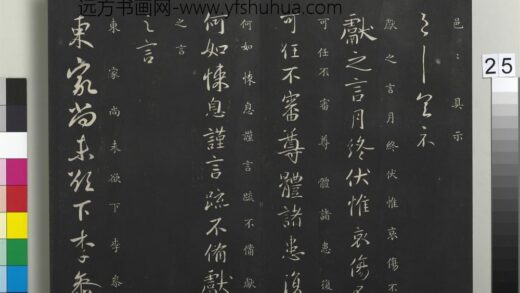 远方书画网-www.yfshuhua.com
25
邑〻具示
邑〻具示
獻之言月終伏惟哀傷不
獻之言月終伏惟哀傷
可任不審尊體諸患復
可任不審尊體諸患復
何如悚息謹言疏不備獻
何如悚息謹言疏不備獻
之言
之言
東家尚未欲下李參
東家尚未欲下李參